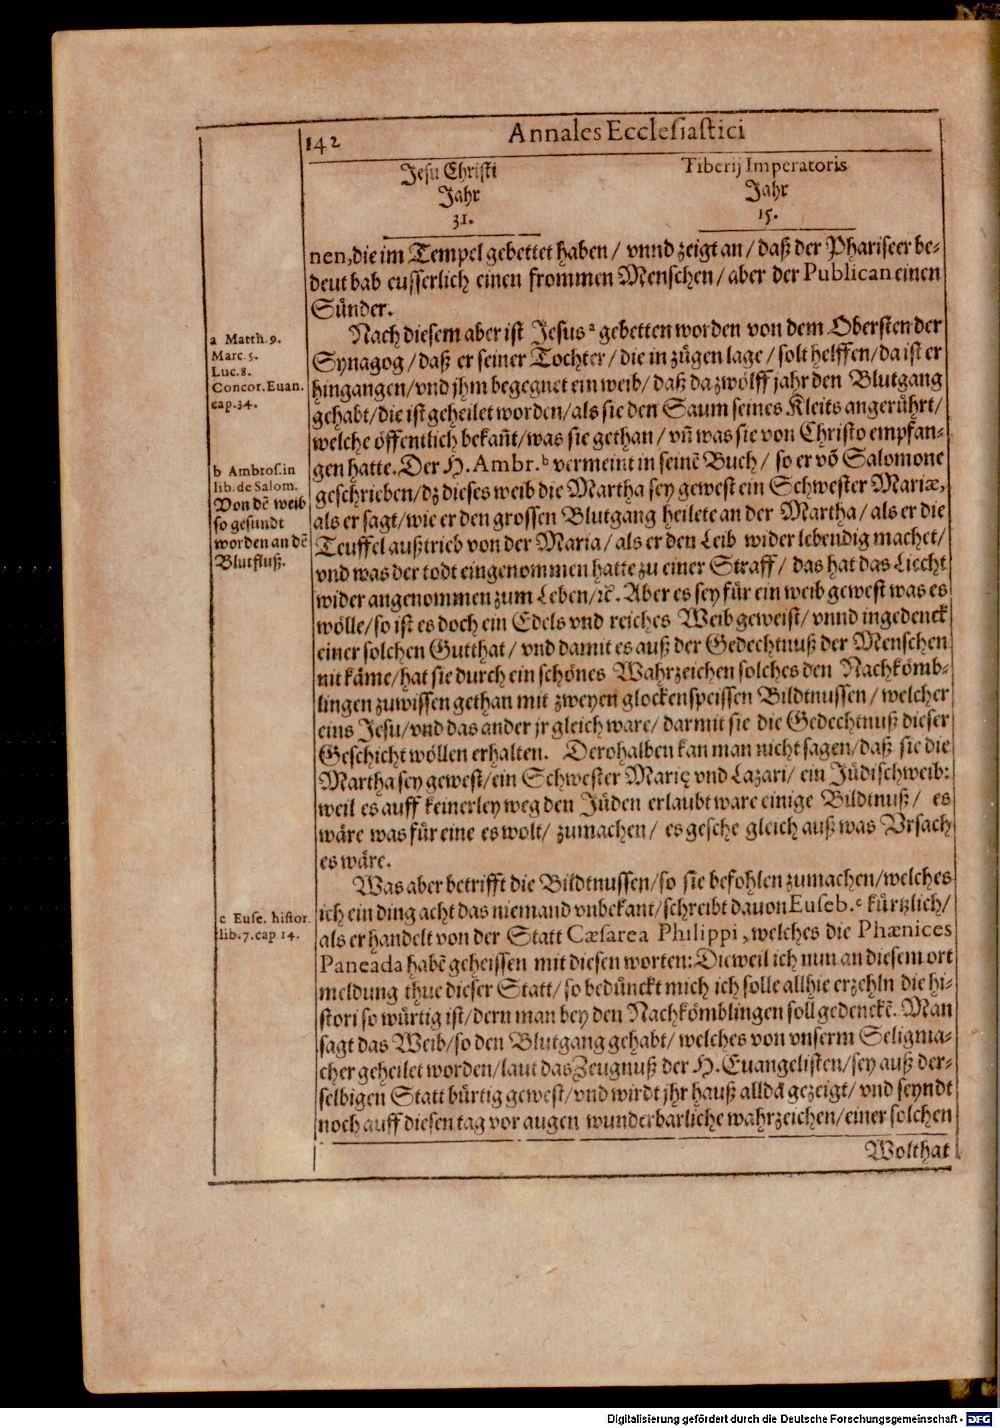 142
Annales Ecclesiastici
Jesu Christi
Jahr
31.
Tiberij Imperatoris
Jahr
15.
nen, die im Tempel gebettet haben / vnnd zeigt an / daß der Phariseer be-
deut hab eusserlich einen frommen Menschen / aber der Publican einen
Sünder.
Nach diesem aber ist Jesus a gebetten worden von dem Obersten der
Synagog / daß er seiner Tochter / die in zügen lage / solt helffen / da ist er
hingangen / vnd jhm begegnet ein weib / daß da zwölff jahr den Blutgang
gehabt / die ist geheilet worden / als sie den Saum seines Kleits angerührt /
welche öffentlich bekañt / was sie gethan / vñ was sie von Christo empfan-
gen hatte. Der H. Ambr. b vermeint in seinē Buch / so er vō Salomone
geschrieben / dz dieses weib die Martha sey gewest ein Schwester Mariæ,
als er sagt / wie er den grossen Blutgang heilete an der Martha / als er die
Teuffel außtrieb von der Maria / als er den Leib wider lebendig machet /
vnd was der todt eingenommen hatte zu einer Straff / das hat das Liecht
wider angenommen zum Leben / ꝛc. Aber es sey für ein weib gewest was es
wölle / so ist es doch ein Edels vnd reiches Weib geweist / vnnd ingedenck
einer solchen Gutthat / vnd damit es auß der Gedechtnuß der Menschen
nit käme / hat sie durch ein schönes Wahrzeichen solches den Nachkömb-
lingen zuwissen gethan mit zweyen glockenspeissen Bildtnussen / welcher
eins Jesu / vnd das ander jr gleich ware / darmit sie die Gedechtnuß dieser
Geschicht wöllen erhalten. Derohalben kan man nicht sagen / daß sie die
Martha sey gewest / ein Schwester Marię vnd Lazari / ein Jüdisch weib:
weil es auff keinerley weg den Jüden erlaubt ware einige Bildtnuß / es
wäre was für eine es wolt / zumachen / es gesche gleich auß was Vrsach
es wäre.
Was aber betrifft die Bildtnussen / so sie befohlen zumachen / welches
ich ein ding acht das niemand vnbekant / schreibt dauon Euseb. c kürtzlich /
als er handelt von der Statt Cæsarea Philippi, welches die Phænices
Paneada habē geheissen mit diesen worten: Dieweil ich nun an diesem ort
meldung thue dieser Statt / so bedünckt mich ich solle allhie erzehln die hi-
stori so würtig ist / dern man bey den Nachkömblingen soll gedenckē. Man
sagt das Weib / so den Blutgang gehabt / welches von vnserm Seligma-
cher geheilet worden / laut das Zeugnuß der H. Euangelisten / sey auß der-
selbigen Statt bürtig gewest / vnd wirdt jhr hauß alldā gezeigt / vnd seyndt
noch auff diesen tag vor augen wunderbarliche wahrzeichen / einer solchen
Wolthat
a Matth. 9.
Marc. 5.
Luc. 8.
Concor. Euan.
cap. 34.
b Ambros. in
lib. de Salom.
Von dē weib
so gesundt
worden an dē
Blutfluß.
c Euse. histor.
lib. 7. cap 14.
Digitalisierung gefördert durch die Deutsche Forschungsgemeinschaft - DFG